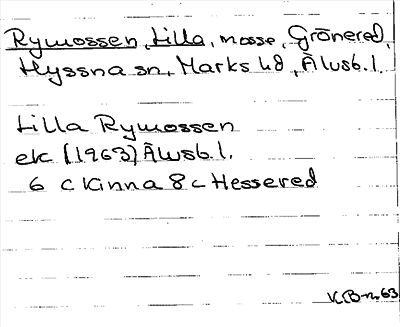 Rymossen, Lilla, mosse, Grönered,
Hyssna sn, Marks hd, Älvsb. l.
Lilla Rymossen
ek (1963) Älvsb. l.
6 c Kinna 8 c Hessered